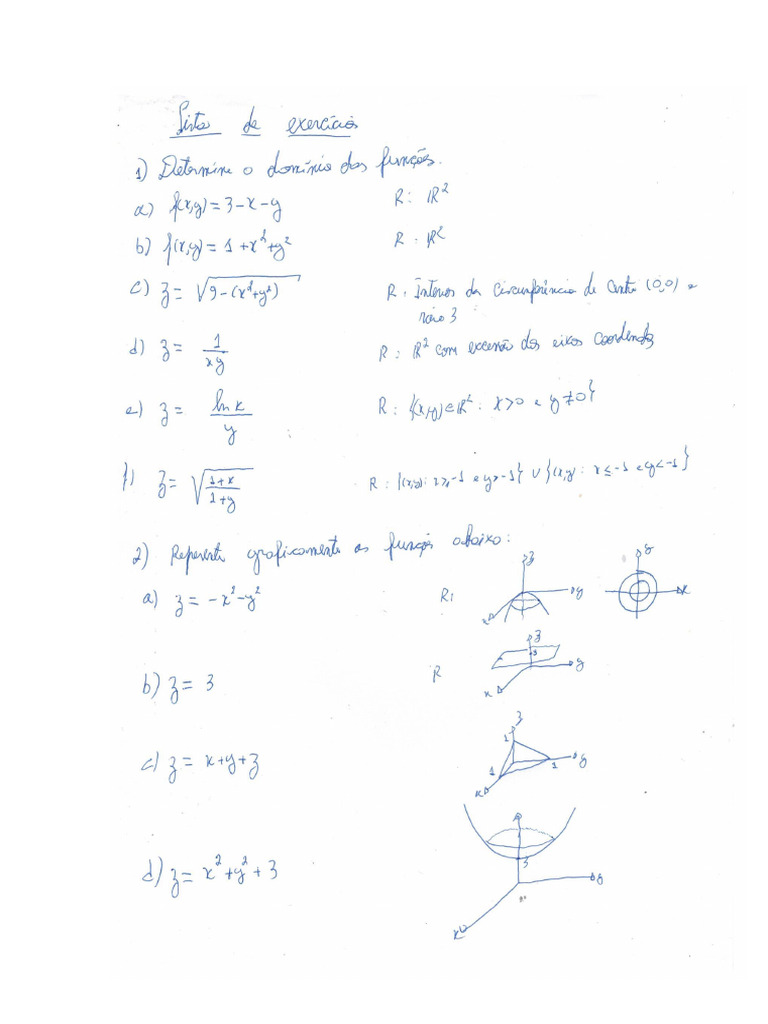 Lista de exercícios
1) Determine o domínio das funções.
a) f(x,y) = 3-x-y R: ℝ²
b) f(x,y) = 1+x²+y² R. ℝ²
c) z = √9-(x²+y²) R. Interior da circunferência de centro (0,0) e
raio 3
d) z = 1/xy R: ℝ² com excessão dos eixos coordenados
e) z = ln x/y R: {(x,y)∈ℝ²: x>0 e y≠0}
f) z = √1+x/1+y R: {(x,y): x≥-1 e y>-1} ∪ {(x,y): x≤-1 e y<-1}
2) Represente graficamente as funções abaixo:
a) z = -x²-y² R: z y x y x
b) z = 3 R z 3 y x
c) z = x+y+z z 1 1 1 y x
d) z = x²+y²+3 3 y x